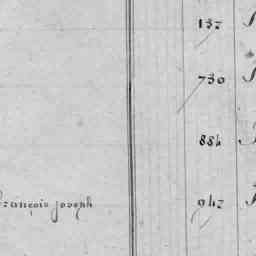 132
730
884
françois joseph 942